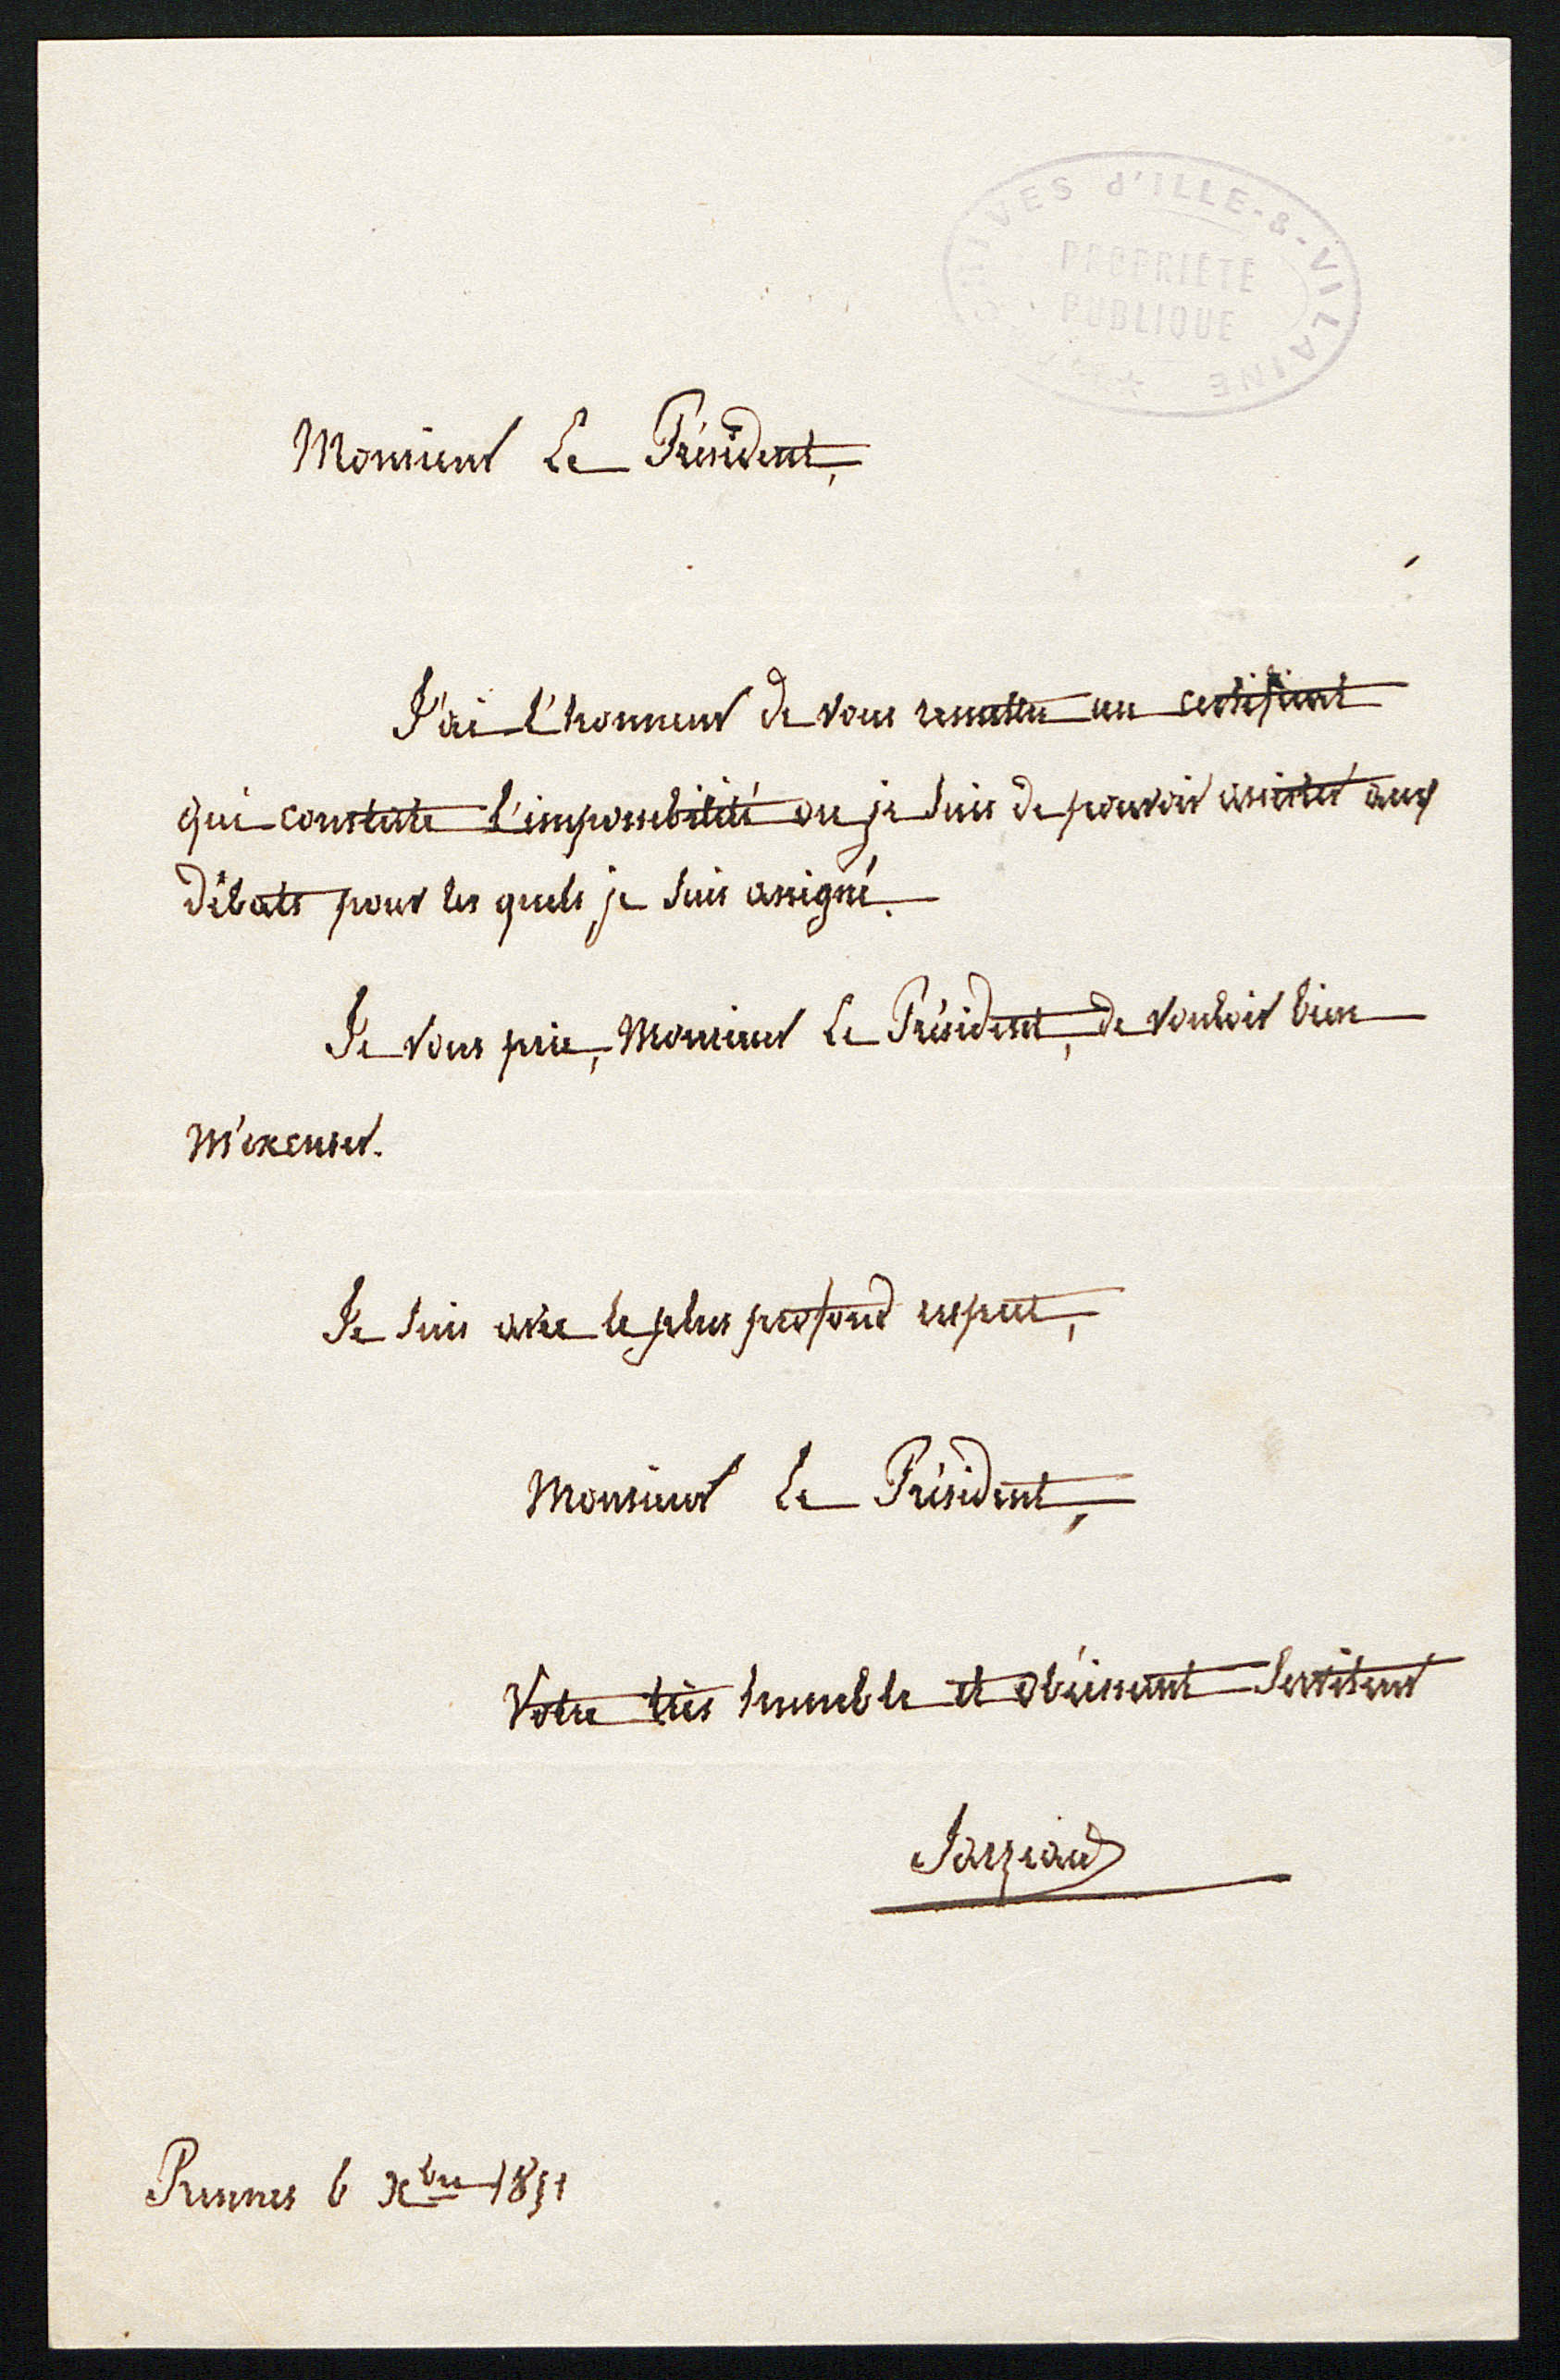 ARCHIVES d'ILLE-&-VILAINE
PROPRIETE
PUBLIQUE
Monsieur Le Président,
J'ai l'honneur de vous remettre un certificat
qui constate l'impossibilité ou je suis de pouvoir assister aux
débats pour les quels je suis assigné.
Je vous prie, Monsieur Le Président, de vouloir bien
m'excuser.
Je suis avec le plus profond respect,
Monsieur Le Président,
Votre très humble et obéissant Serviteur
Rennes 6 Xbre 1851